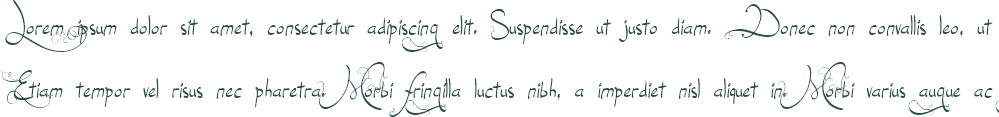 Lorem ipsum dolor sit amet, consectetur adipiscing elit. Suspendisse ut justo diam. Donec non convallis leo, ut
Etiam tempor vel risus nec pharetra. Morbi fringilla luctus nibh, a imperdiet nisl aliquet in. Morbi varius augue ac